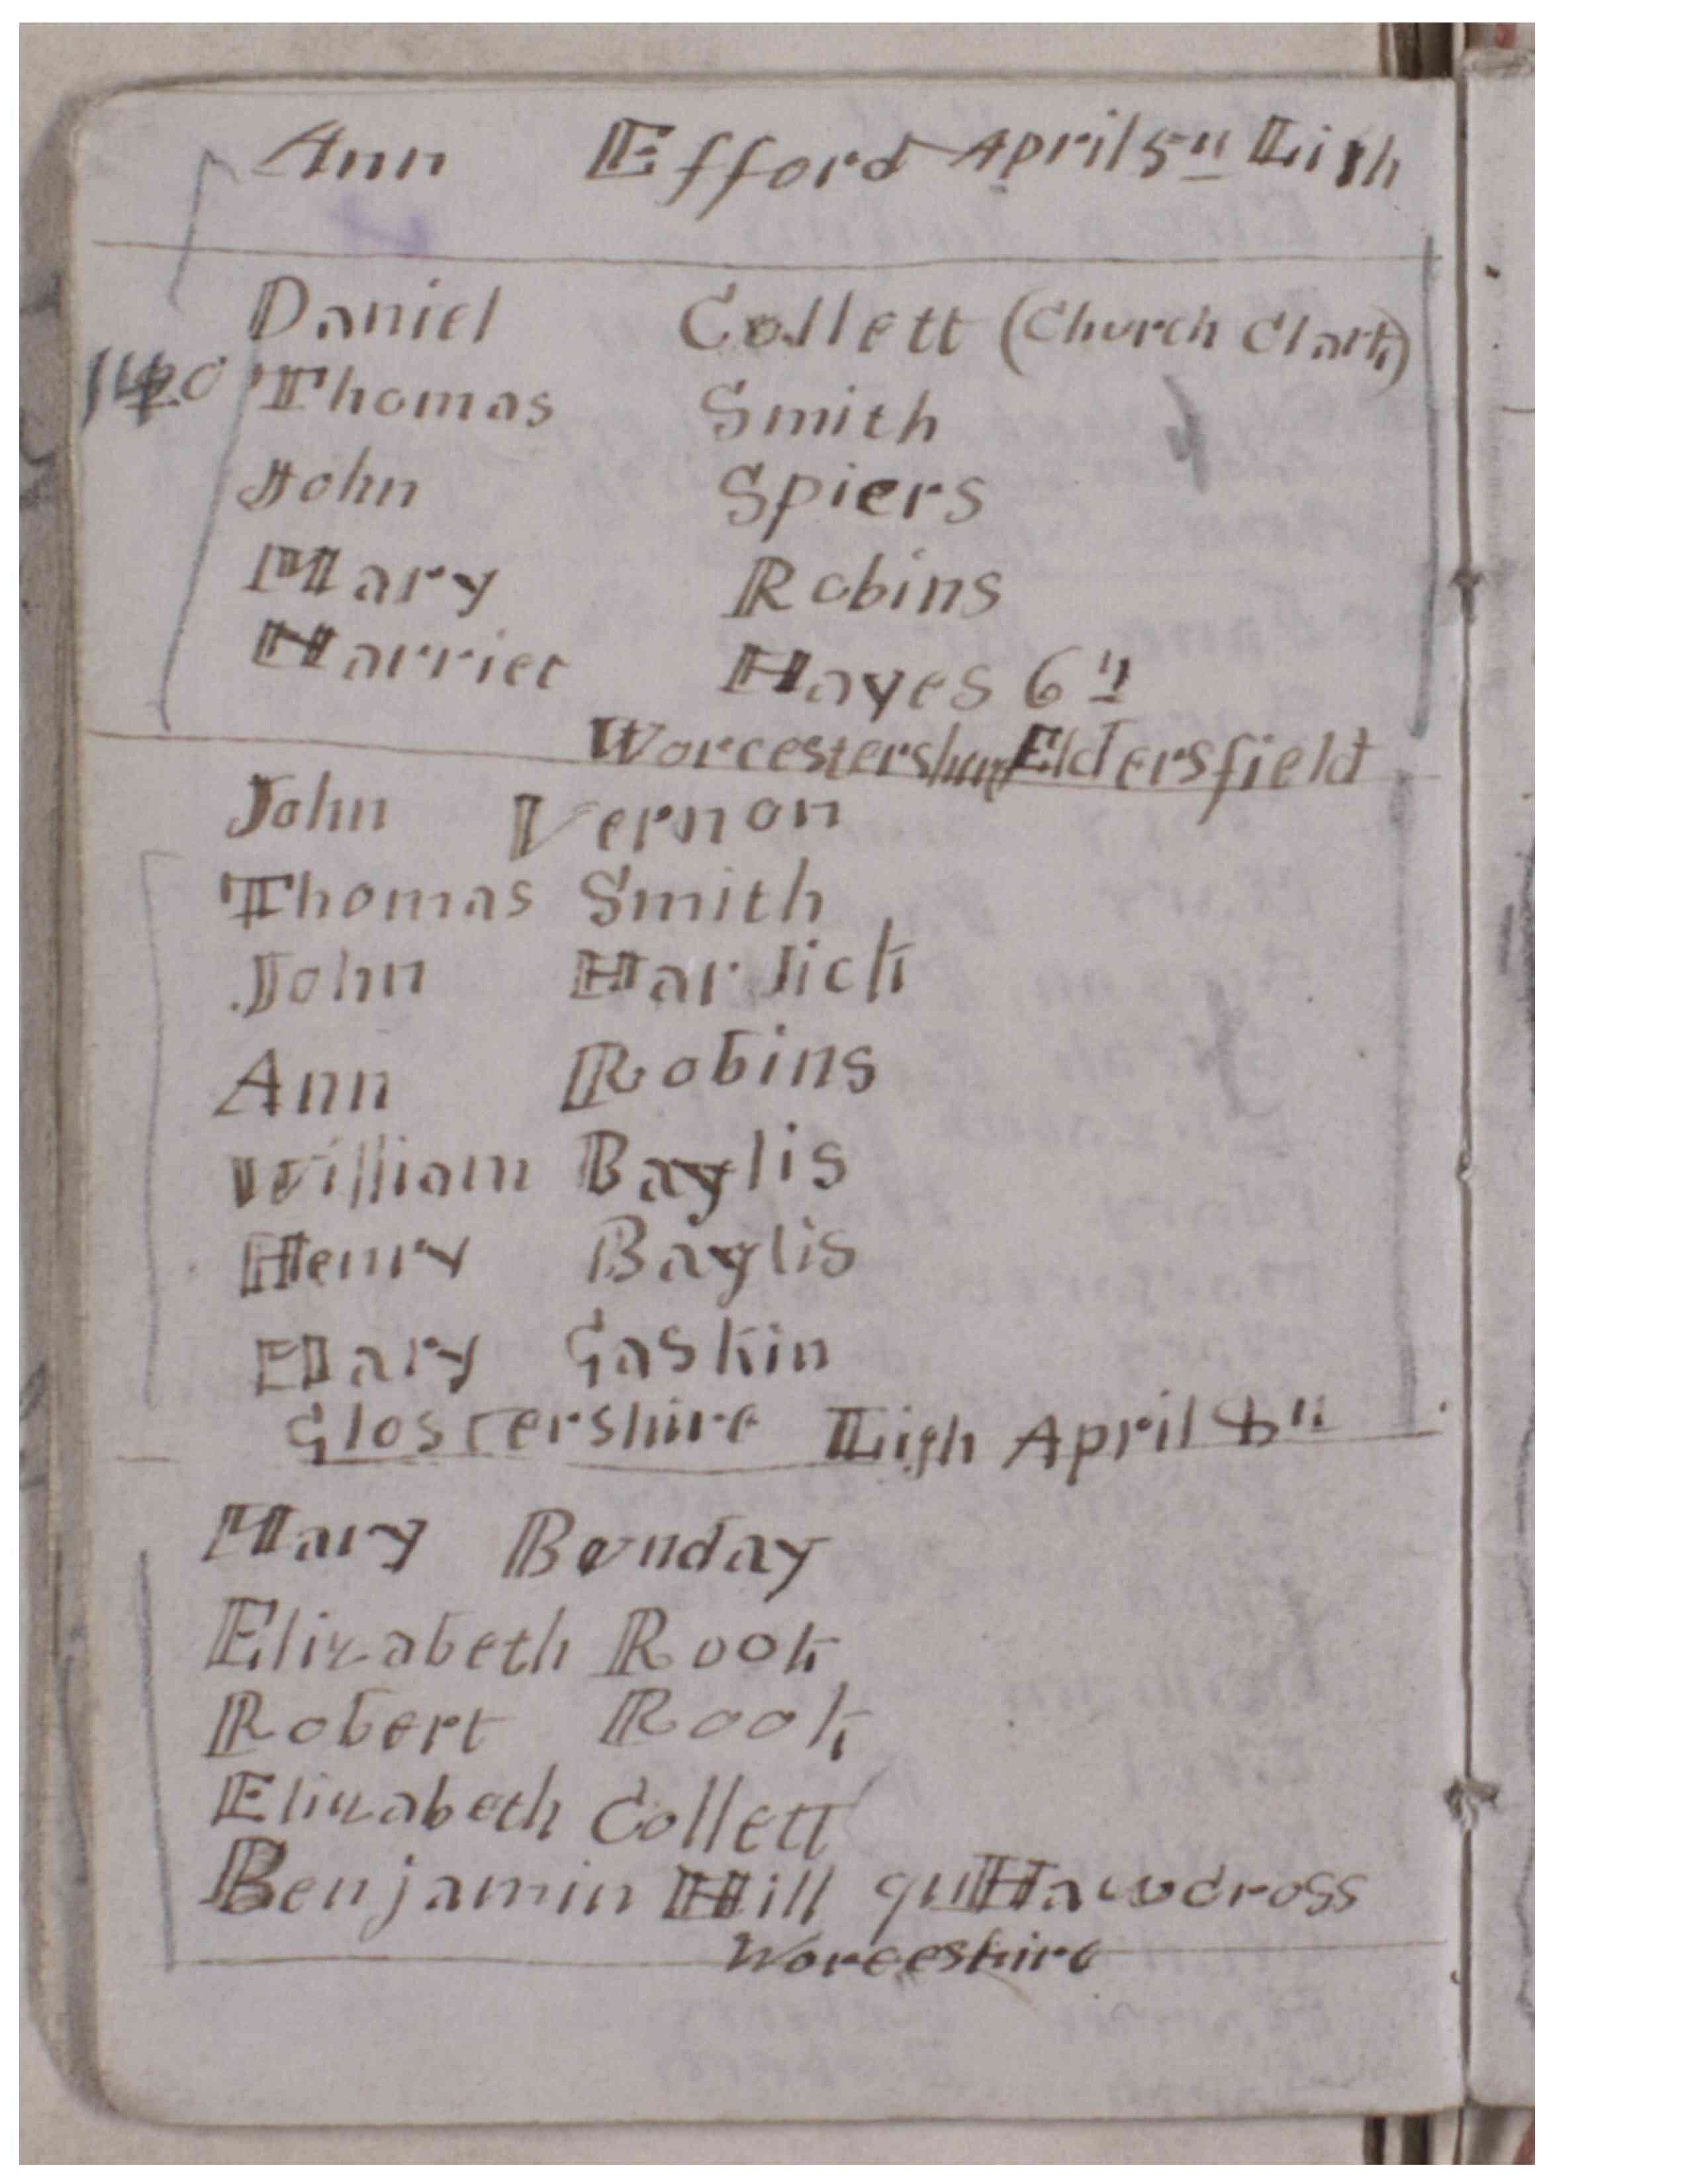 Ann Efford April 5th Ligh
Daniel Collett (Church Clark)
Thomas Smith
John Spiers
Mary Robins
Harriet Hayes 6th
Worcestershire Eldersfield
John Vernon
Thomas Smith
John Harlick
Ann Robins
William Baylis
Henry Baylis
Mary Gaskin
Glostershire Ligh April 8th
Mary Bunday
Elizabeth Rook
Robert Rook
Elizabeth Collett
Benjamin Hill Hawcross
Worceshire